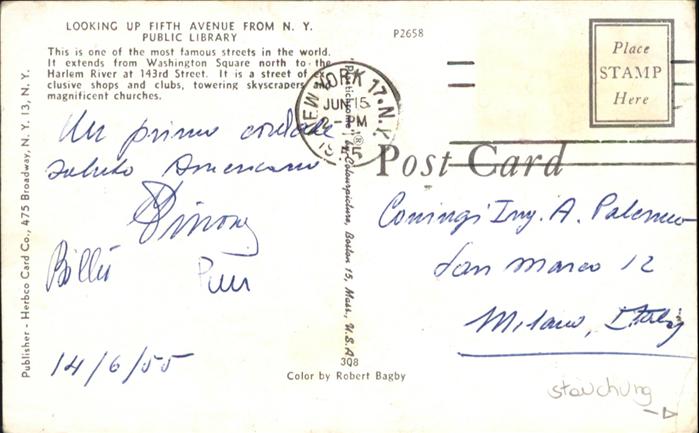 LOOKING UP FIFTH AVENUE FROM N. Y.
PUBLIC LIBRARY
This is one of the most famous streets in the world.
It extends from Washington Square north to the
Harlem River at 143rd Street. It is a street of ex-
clusive shops and clubs, towering skyscrapers and
magnificent churches.
P2658
Place
STAMP
Here
NEW YORK 17. N.Y.
JUN 15
2-PM
1955
Post Card
Un primo cordiale
saluto Americano
14/6/55
Coniugi Ing. A. Palermo
San Marco 12
Milano, Italy
Publisher - Herbco Card Co., 475 Broadway, N. Y. 13, N. Y.
by Colourpicture, Boston 15, Mass., U.S.A.
308
Color by Robert Bagby
stauchung